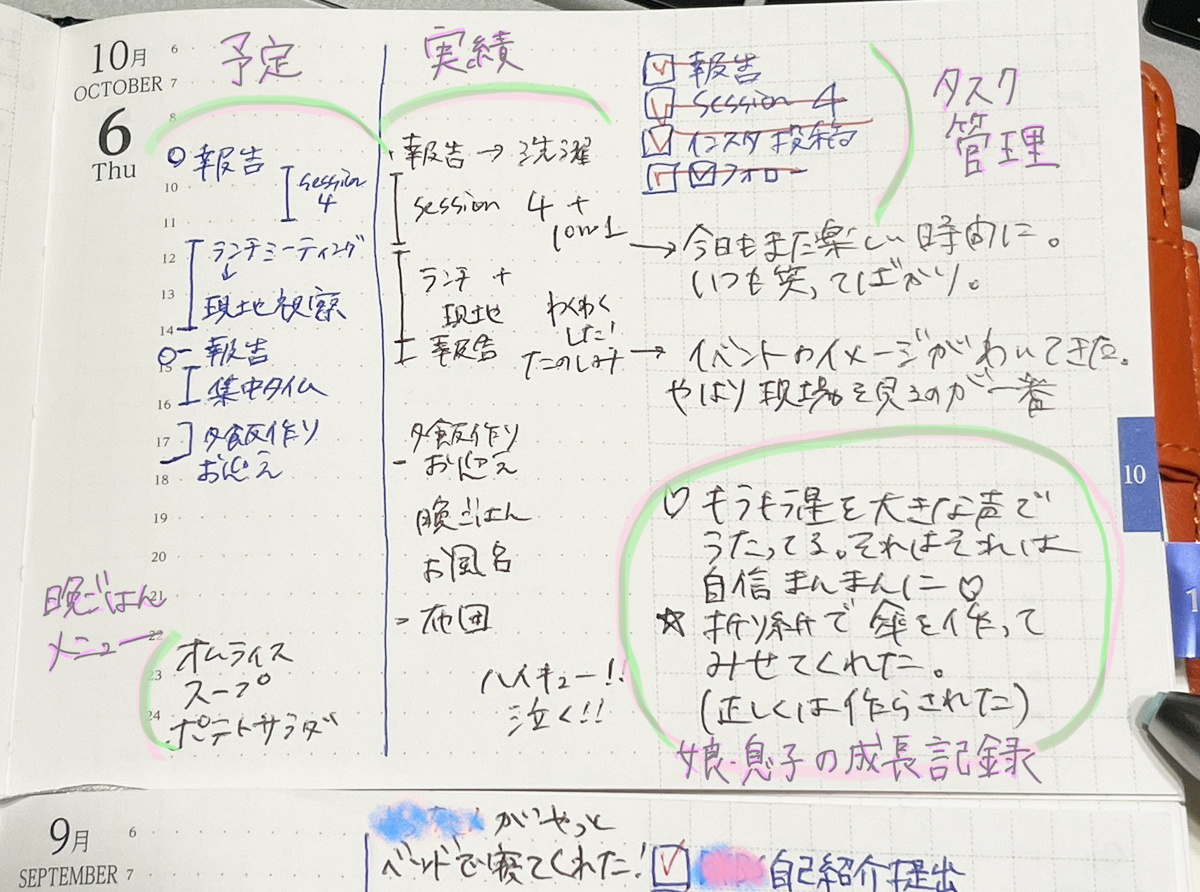 10月
OCTOBER
6
Thu
6
7
8
10
11
12
13
14
16
17
18
19
20
21
22
23
24
予定
報告
session
4
ランチミーティング
↓
現地視察
報告
集中タイム
夕飯作り
お迎え
晩ごはん
メニュー
オムライス
スープ
ポテトサラダ
実績
報告→洗濯
session 4 +
1on1
ランチ +
現地
報告
わくわく
した!
たのしみ
夕飯作り
お迎え
晩ごはん
お風呂
布団
ハイキュー!!
泣く!!
報告
session 4
インスタ投稿
フォロー
タスク
管理
→今日もまた楽しい時間に。
いつも笑ってばかり。
→イベントのイメージがわいてきた。
やはり現場を見るのが一番
♡もうもう星を大きな声で
うたってる。それはそれは
自信まんまんに♡
☆折り紙で傘を作って
みせてくれた。
(正しくは作らされた)
娘・息子の成長記録
10
1
9月
SEPTEMBER
6
7
がやっと
ベッドで寝てくれた!
自己紹介提出